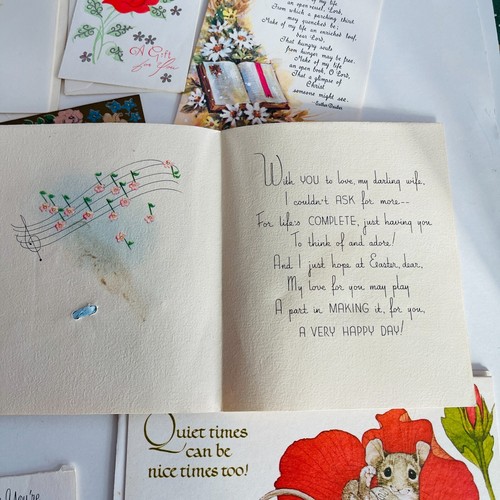 A Gift
for You
of my life
Lord,
From which a parching thirst
may quenched be.
Make of my life an enriched loaf,
dear Lord,
That hungry souls
from hunger may be free.
Make of my life
an open book, O Lord,
That a glimpse of
Christ
someone might see.
With YOU to love, my darling wife,
I couldn't ASK for more--
For life's COMPLETE, just having you
To think of and adore!
And I just hope at Easter, dear,
My love for you may play
A part in MAKING it, for you,
A VERY HAPPY DAY!
Quiet times
can be
nice times too!
You're